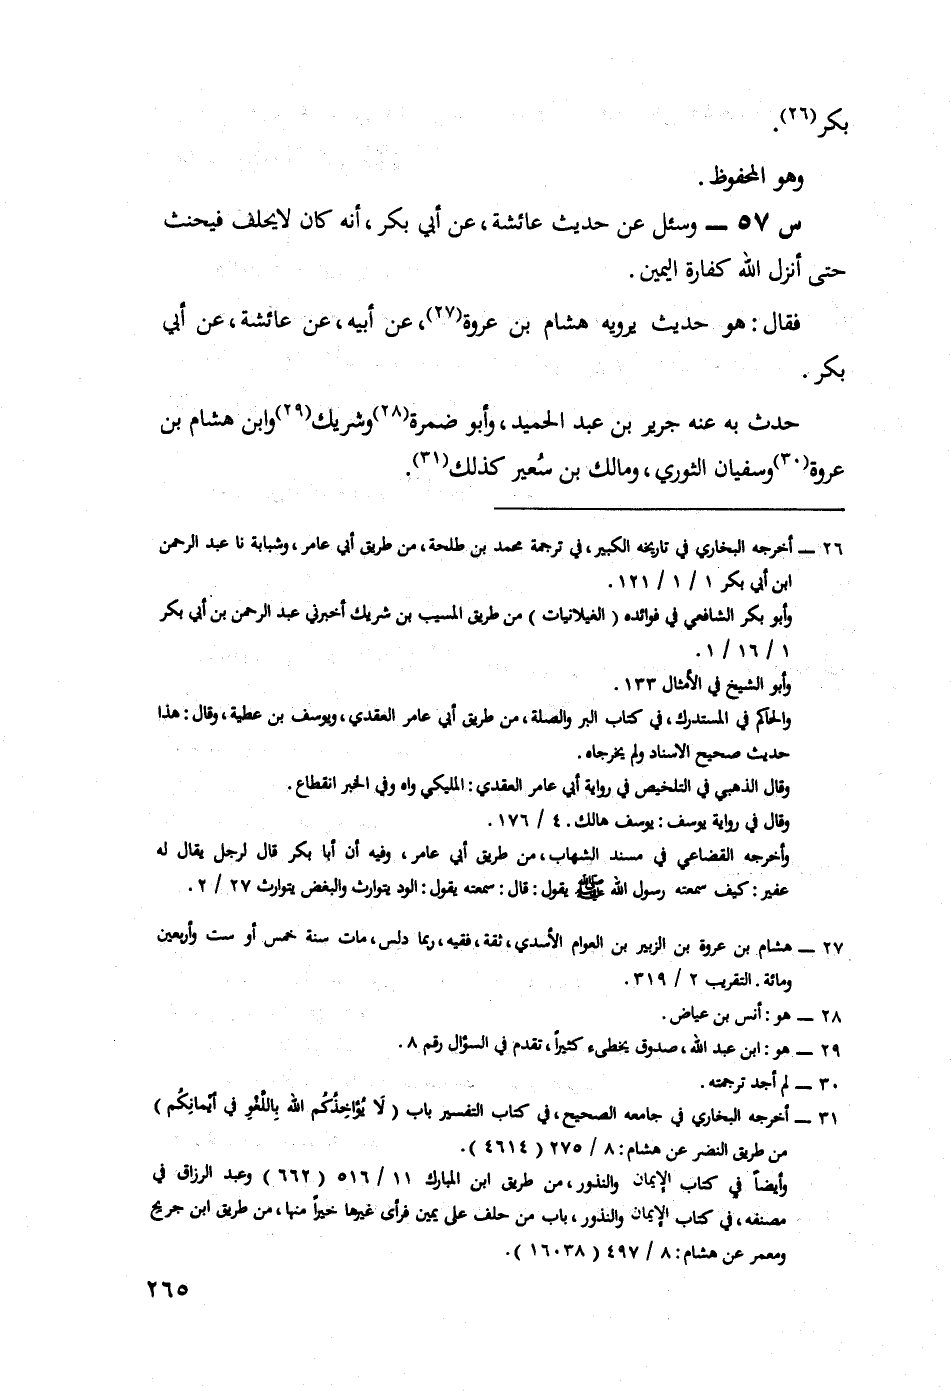 بكر(٢٦).
وهو المحفوظ .
س ٥٧ ــ وسئل عن حديث عائشة، عن أبي بكر، أنه كان لايحلف فيحنث
حتى أنزل الله كفارة اليمين .
فقال : هو حديث يرويه هشام بن عروة(٢٧)، عن أبيه، عن عائشة، عن أبي
بكر .
حدث به عنه جرير بن عبد الحميد، وأبو ضمرة(٢٨)وشريك(٢٩)وابن هشام بن
عروة(٣٠)وسفيان الثوري، ومالك بن سُعير كذلك(٣١).
٢٦ ــ أخرجه البخاري في تاريخه الكبير، في ترجمة محمد بن طلحة، من طريق أبي عامر، وشبابة نا عبد الرحمن
ابن أبي بكر ١ / ١ / ١٢١ .
وأبو بكر الشافعي في فوائده ( الغيلانيات ) من طريق المسيب بن شريك أخبرني عبد الرحمن بن أبي بكر
١ / ١٦ / ١ .
وأبو الشيخ في الأمثال ١٣٣ .
والحاكم في المستدرك، في كتاب البر والصلة، من طريق أبي عامر العقدي، ويوسف بن عطية، وقال : هذا
حديث صحيح الاسناد ولم يخرجاه .
وقال الذهبي في التلخيص في رواية أبي عامر العقدي : المليكي واه وفي الخبر انقطاع .
وقال في رواية يوسف : يوسف هالك . ٤ / ١٧٦ .
وأخرجه القضاعي في مسند الشهاب، من طريق أبي عامر، وفيه أن أبا بكر قال لرجل يقال له
عفير : كيف سمعته رسول الله ﷺ يقول : قال : سمعته يقول : الود يتوارث والبغض يتوارث ٢٧ / ٢ .
٢٧ ــ هشام بن عروة بن الزبير بن العوام الأسدي، ثقة، فقيه، ربما دلس، مات سنة خمس أو ست وأربعين
ومائة . التقريب ٢ / ٣١٩ .
٢٨ ــ هو : أنس بن عياض .
٢٩ ــ هو : ابن عبد الله، صدوق يخطىء كثيراً، تقدم في السؤال رقم ٨ .
٣٠ ــ لم أجد ترجمته .
٣١ ــ أخرجه البخاري في جامعه الصحيح، في كتاب التفسير باب ( لَا يُؤَاخِذُكُم الله بِاللَّغْوِ في أَيْمانِكُم )
من طريق النضر عن هشام : ٨ / ٢٧٥ ( ٤٦١٤ ) .
وأيضاً في كتاب الإيمان والنذور، من طريق ابن المبارك ١١ / ٥١٦ ( ٦٦٢ ) وعبد الرزاق في
مصنفه، في كتاب الإيمان والنذور، باب من حلف على يمين فرأى غيرها خيراً منها، من طريق ابن جريج
ومعمر عن هشام : ٨ / ٤٩٧ ( ١٦٠٣٨ ) .
٢٦٥